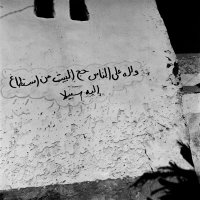 ولله على الناس حج البيت من استطاع
إليه سبيلا